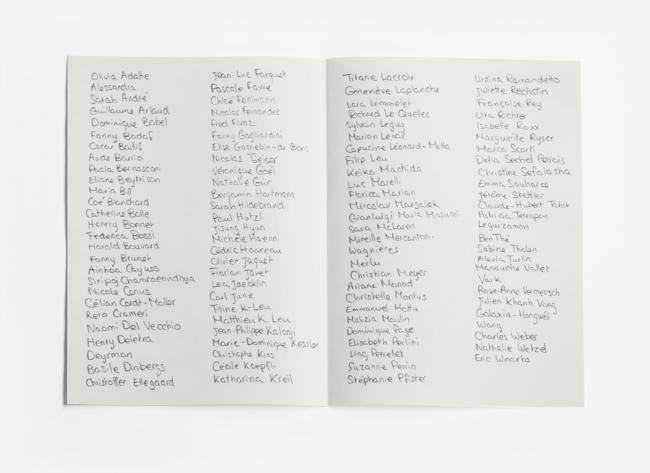 Olivia Adatte
Alessandra
Sarah André
Guillaume Arlaud
Dominique Babel
Fanny Badaf
Oscar Ballif
Aude Barrio
Paola Bernasconi
Eliane Beytrison
Maria Bill
Coé Blandiard
Catherine Bolle
Henry Bonnet
Federica Bossi
Harold Bouvard
Fanny Brunet
Ainhoa Cayuso
Siripoj Chamroenvidhya
Nicole Conus
Célian Cordt-Moller
Reto Crameri
Naomi Del Vecchio
Henry Deletra
Deyrmon
Basile Dinbergs
Christoffer Ellegaard
Jean-Luc Farquet
Pascale Favre
Chloé Fehlmann
Nicolas Fernandez
Fred Fivaz
Fanny Gagliardini
Elise Gagnebin-de Bons
Nicolas Geiser
Véronique Goël
Nathalie Gür
Benjamin Hartmann
Sarah Hildebrand
Paul Hutzli
Jisung Hyun
Michèle Haenni
Cédric Hoareau
Olivier Jaquet
Florian Javet
Lea Jaecklin
Carl June
Titine K-Leu
Matthieu K. Leu
Jean-Philippe Kalonji
Marie-Dominique Kessler
Christophe Kiss
Cécile Koepfli
Katharina Kreil
Titane Lacroix
Geneviève Laplanche
Lora Lemmelet
Richard Le Quellec
Sylvain Leguy
Marion
Capucine Léonard-Matta
Filip Leu
Keiko Machida
Luc Marelli
Florica Marian
Miroslav Marsalek
Gianluigi Maria Masucci
Sara McLaren
Mireille Mercanton-
Wagnières
Merlu
Christian Meyer
Ariane Monod
Christelle Montus
Emmanuel Mottu
Malizia Moulin
Dominique Page
Elisabeth Perlini
Line Perrelet
Suzanne Perrin
Stéphanie Pfister
Ursina Ramondetto
Juliette Rechatin
Françoise Rey
Uta Richter
Isabelle Roux
Marguerite Ryser
Marco Scorti
Delia Sechel Perrois
Christine Sefolosha
Emma Souharce
Jérôme Stettler
Claude-Hubert Tatot
Patricia Terrapon
Leguizamon
BenThé
Sabine Thelen
Alexia Turlin
Manouche Vallet
Vark
Rose-Anne Vermersch
Julien Khanh Vong
Galaxia-Honguei
Wang
Charles Weber
Nathalie Wetzel
Eric Winarto